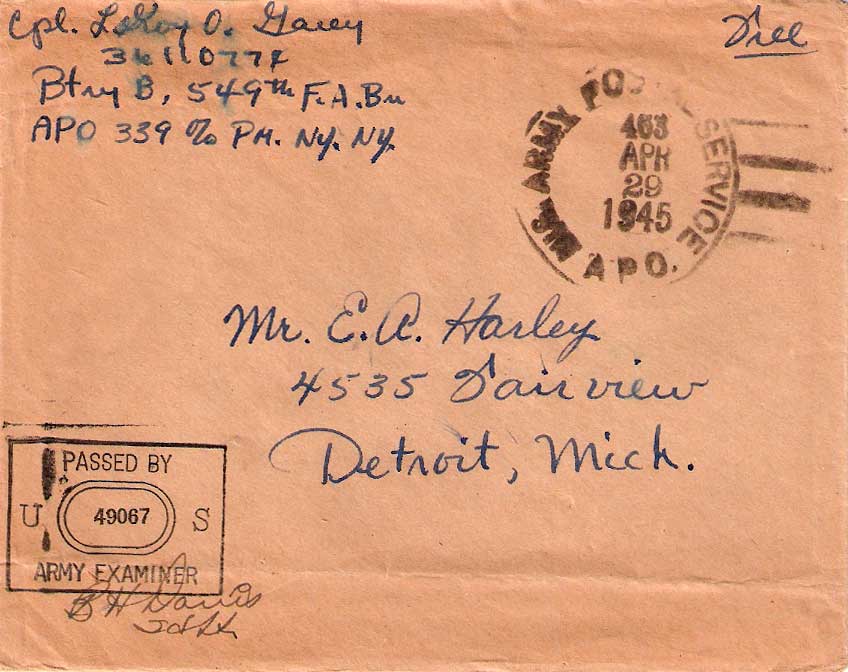 Cpl. LeRoy O. Garey
Free
36110774
Btry B, 549th F.A.Bn
APO 339 % PM. Ny. Ny.
U.S. ARMY POSTAL SERVICE
463
APR
29
1945
A P O.
Mr. E.A. Harley
4535 Fairview
Detroit, Mich.
PASSED BY
U 49067 S
ARMY EXAMINER
B H Davis
2d Lt